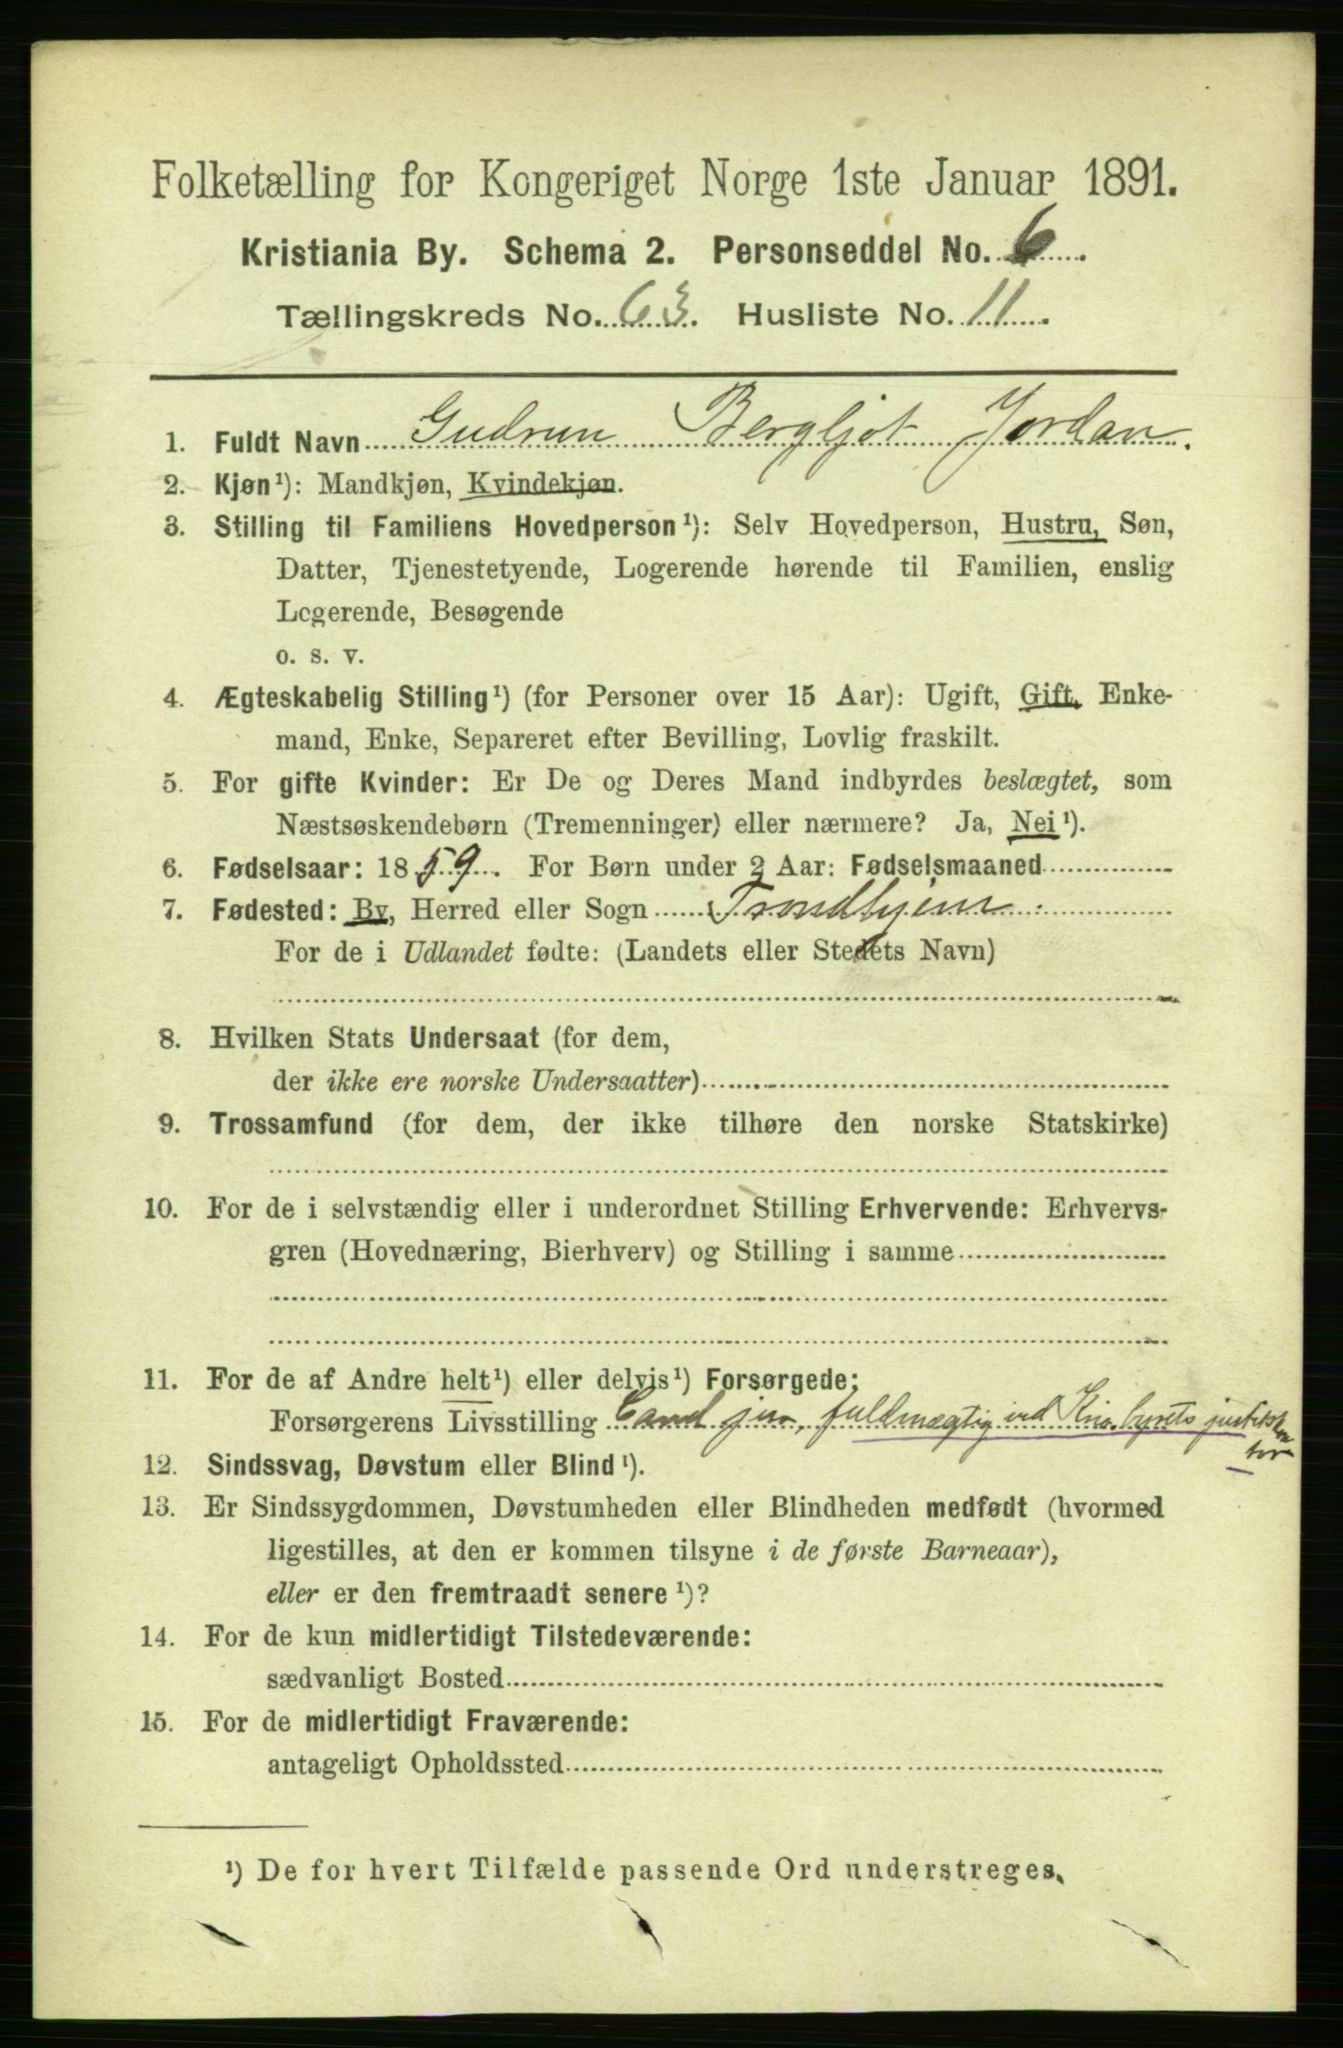 Folketælling for Kongeriget Norge 1ste Januar 1891.
Kristiania By. Schema 2. Personseddel No. 6.
Tællingskreds No. 63. Husliste No. 11.
1. Fuldt Navn Gudrun Bergljot Jordan.
2. Kjøn¹): Mandkjøn, Kvindekjøn.
3. Stilling til Familiens Hovedperson¹): Selv Hovedperson, Hustru, Søn,
Datter, Tjenestetyende, Logerende hørende til Familien, enslig
Logerende, Besøgende
o. s. v.
4. Ægteskabelig Stilling¹) (for Personer over 15 Aar): Ugift, Gift, Enke-
mand, Enke, Separeret efter Bevilling, Lovlig fraskilt.
5. For gifte Kvinder: Er De og Deres Mand indbyrdes beslægtet, som
Næstsøskendebørn (Tremenninger) eller nærmere? Ja, Nei¹).
6. Fødselsaar: 1859. For Børn under 2 Aar: Fødselsmaaned
7. Fødested: By, Herred eller Sogn Trondhjem.
For de i Udlandet fødte: (Landets eller Stedets Navn)
8. Hvilken Stats Undersaat (for dem,
der ikke ere norske Undersaatter)
9. Trossamfund (for dem, der ikke tilhøre den norske Statskirke)
10. For de i selvstændig eller i underordnet Stilling Erhvervende: Erhvervs-
gren (Hovednæring, Bierhverv) og Stilling i samme
11. For de af Andre helt¹) eller delvis¹) Forsørgede:
Forsørgerens Livsstilling Cand jur, fuldmægtig ved Kria. byrets justitskon
tor
12. Sindssvag, Døvstum eller Blind¹).
13. Er Sindssygdommen, Døvstumheden eller Blindheden medfødt (hvormed
ligestilles, at den er kommen tilsyne i de første Barneaar),
eller er den fremtraadt senere¹)?
14. For de kun midlertidigt Tilstedeværende:
sædvanligt Bosted
15. For de midlertidigt Fraværende:
antageligt Opholdssted
¹) De for hvert Tilfælde passende Ord understreges.